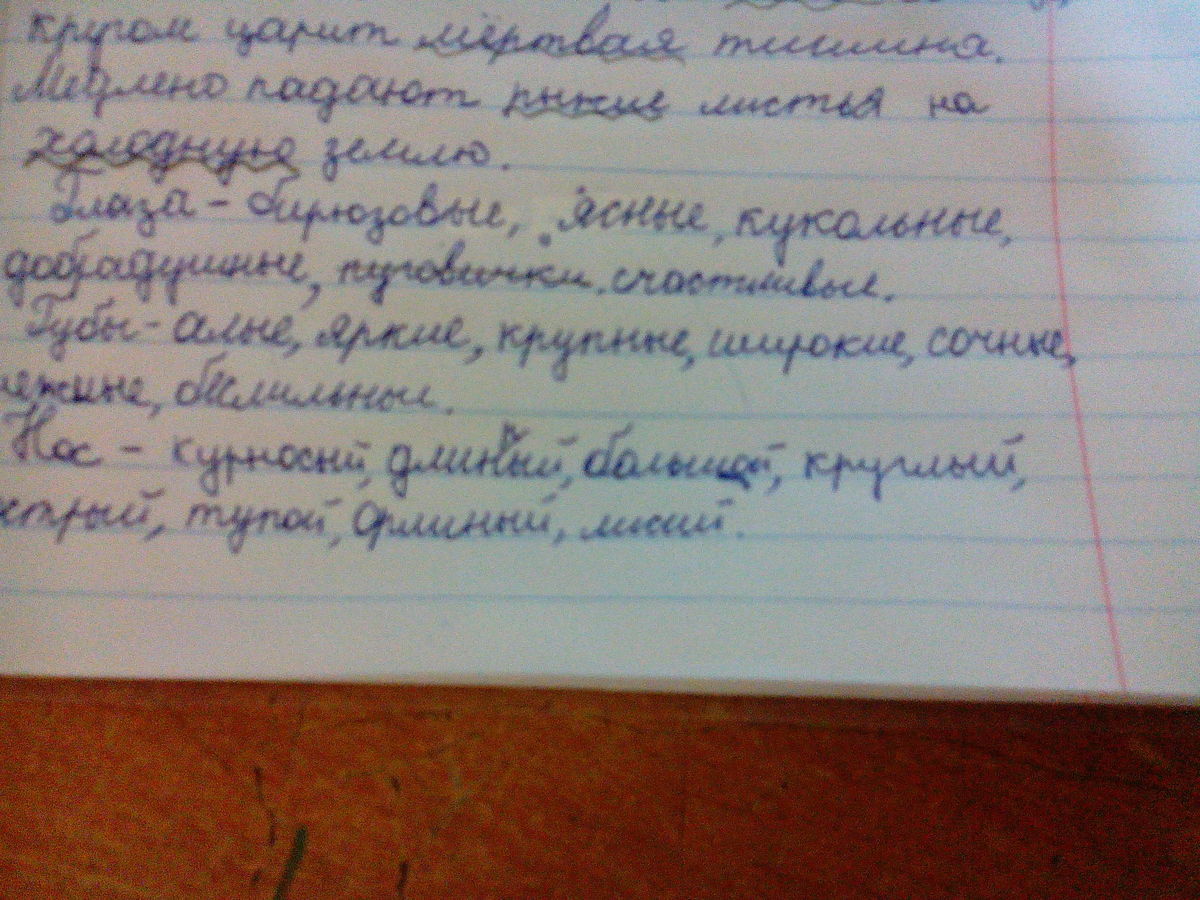 кругом царит мёртвая тишина.
Медлено падают рыжие листья на
холодную землю.
Глаза - бирюзовые, ясные, кукольные,
добрадушные, пуговички. счастливые.
Губы - алые, яркие, крупные, широкие, сочные,
Нос - курносый, длинный, большой, круглый,
стрый, тупой, орлиный, лисий.